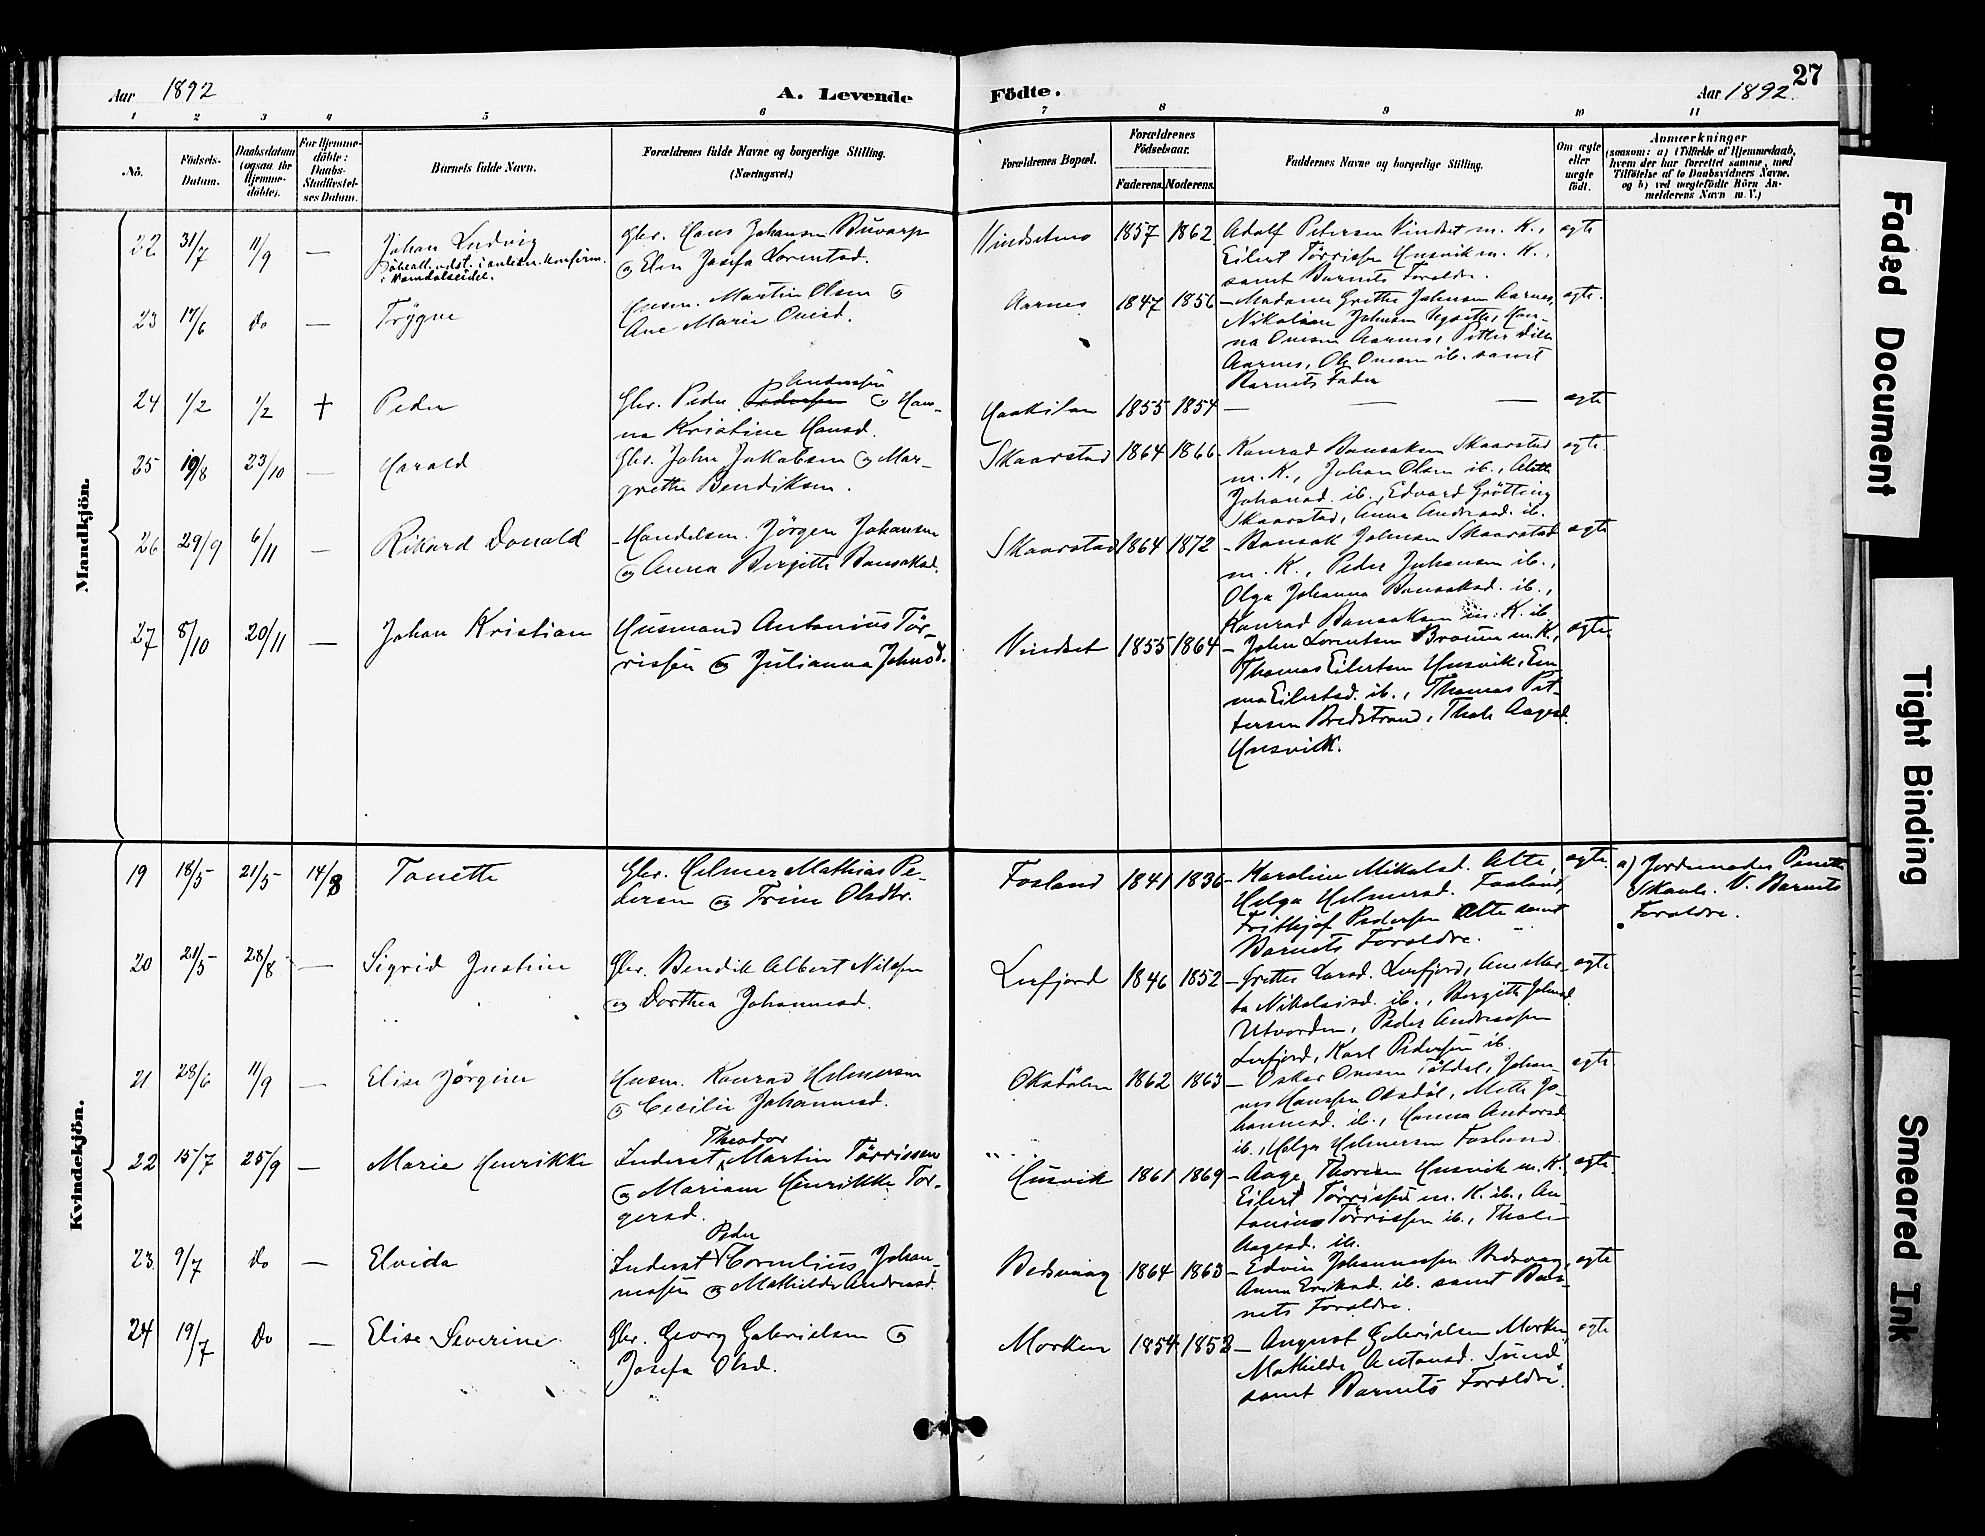 27
Aar 1892
A. Levende
Födte.
Aar 1892.
1 2 3 4 5 6 7 8 9 10 11
No.
Födsels-
Datum.
Daabsdatum
(ogsaa for
Hjemme-
döbte).
For Hjemme-
döbte:
Daabs-
Stadfæstel-
ses Datum.
Barnets fulde Navn.
Forældrenes fulde Navne og borgerlige Stilling.
(Næringsvei.)
Forældrenes Bopæl.
Forældrenes
Födselsaar.
Faderens. Moderens.
Faddernes Navne og borgerlige Stilling.
Om ægte
eller
uægte
födt.
Anmærkninger
(saasom: a) i Tilfælde af Hjemmedaab,
hvem der har forrettet samme, med
Tilföielse af to Daabsvidners Navne,
og b) ved uægtefödte Börn An-
melderens Navn m. V.)
Mandkjön.
22 31/7 11/9 — Johan Ludvig
Gbr. Hans Johansen Buvarp
og Elen Josefa Lorentsd.
Vindsetmo 1857 1862
Adolf Petersen Vindset m. K.,
Eilert Törrissen Husvik m. K.,
samt Barnets Forældre.
ægte
23 17/6 Do — Trÿgve
Husm. Martin Olsen og
Ane Marie Ovesd.
Aarnes 1847 1856
— Madame Grethe Johnsen Aarnes,
Nikoline Johnsen
na Ovesen Aarnes, Petter
Aarnes, Ole Ovesen ib. samt
Barnets Fader
ægte.
24 1/2 1/2 † Peder
Anderssen
Gbr. Peder Pedersen og Han-
na Kristine Hansd.
1855 1854 — — —
ægte
25 19/8 23/10 — Harald
Gbr. John Jakobsen og Mar-
grethe Bendiksen.
Skaarstad 1864 1866
Konrad Bansaksen Skaarstad
m. K., Johan Olsen ib., Alette
Johansd. ib., Edvard Grötting
Skaarstad, Anna Andreasd. ib.
ægte.
26 29/9 6/11 — Rikard Donald
Handelsm. Jörgen Johansen
og Anna Birgitte Bansaksd.
Skaarstad 1864 1872
— Bansak Johnsen Skaarstad
m. K., Peder Johansen ib.,
Olga Johanna Bansaksd. ib.,
Konrad Bansaksen m. K. ib.
ægte
27 8/10 20/11 — Johan Kristian
Husmand Antonius Tör-
rissen og Julianna Johnsd.
Vindset 1855 1864
— John Lorentsen Braun m. K.,
Thomas Eilertsen Husvik, Em
ma Eilertsd. ib., Thomas Pet-
tersen Bredstrand, Thale Aagesd.
Husvik.
ægte
Kvindekjön.
19 18/5 21/5 14/8 Tonette
Gbr. Helmer Mathias Pe-
dersen og Trine Olsdtr.
Fosland 1841 1836
— Karoline Mikalsd. Alte,
Helga Helmersd. Fosland,
Frithjof Pedersen Alte samt
Barnets Forældre.
ægte.
a) Jordemoder
V. Barnets
Forældre.
20 21/5 28/8 — Sigrid Justine
Gbr. Bendik Albert Nilssen
og Dorthea Johannesd.
Lerfjord 1846 1852
— Grethe Larsd. Lerfjord, Ane Mar-
ta Nikolaisd. ib., Bergitte Johnsd.
Utvorden, Peder Andreassen
Lerfjord, Karl Pedersen ib.
ægte
21 28/6 11/9 — Elise Jörgine
Husm. Konrad Helmersen
og Cecilie Johannesd.
Oksdölen 1862 1863
— Oskar Ovesen Tötdal, Johan-
nes Hanssen Oksdöl, Mette Jo-
hannesd. ib., Hanna Antonsd
ib., Helga Helmersen Fosland.
ægte
22 15/7 25/9 — Marie Henrikke
Theodor
Inderst Martin Törrissen
og Mariane Henrikke Tor-
gersd.
Husvik 1861 1869
— Aage Thoresen Husvik m. K.,
Eilert Törrissen m. K. ib., An-
tonius Törrissen ib., Thale
Aagesd. ib.
ægte.
23 9/7 Do — Elvida
Peder
Inderst Cornelius Johan-
nessen og Mathilde Andreasd.
Bedsvaag 1864 1863
— Edvin Johannessen Bedsvaag,
Anna Eriksd. ib. samt Bar-
nets Forældre.
ægte
24 19/7 Do — Elise Severine
Gbr. Georg Gabrielsen og
Josefa Olsd.
Morken 1854 1852
— August Gabrielsen Morken,
Mathilde Antonsd. Sund
samt Barnets Forældre.
ægte
Faded Document
Tight Binding
Smeared Ink